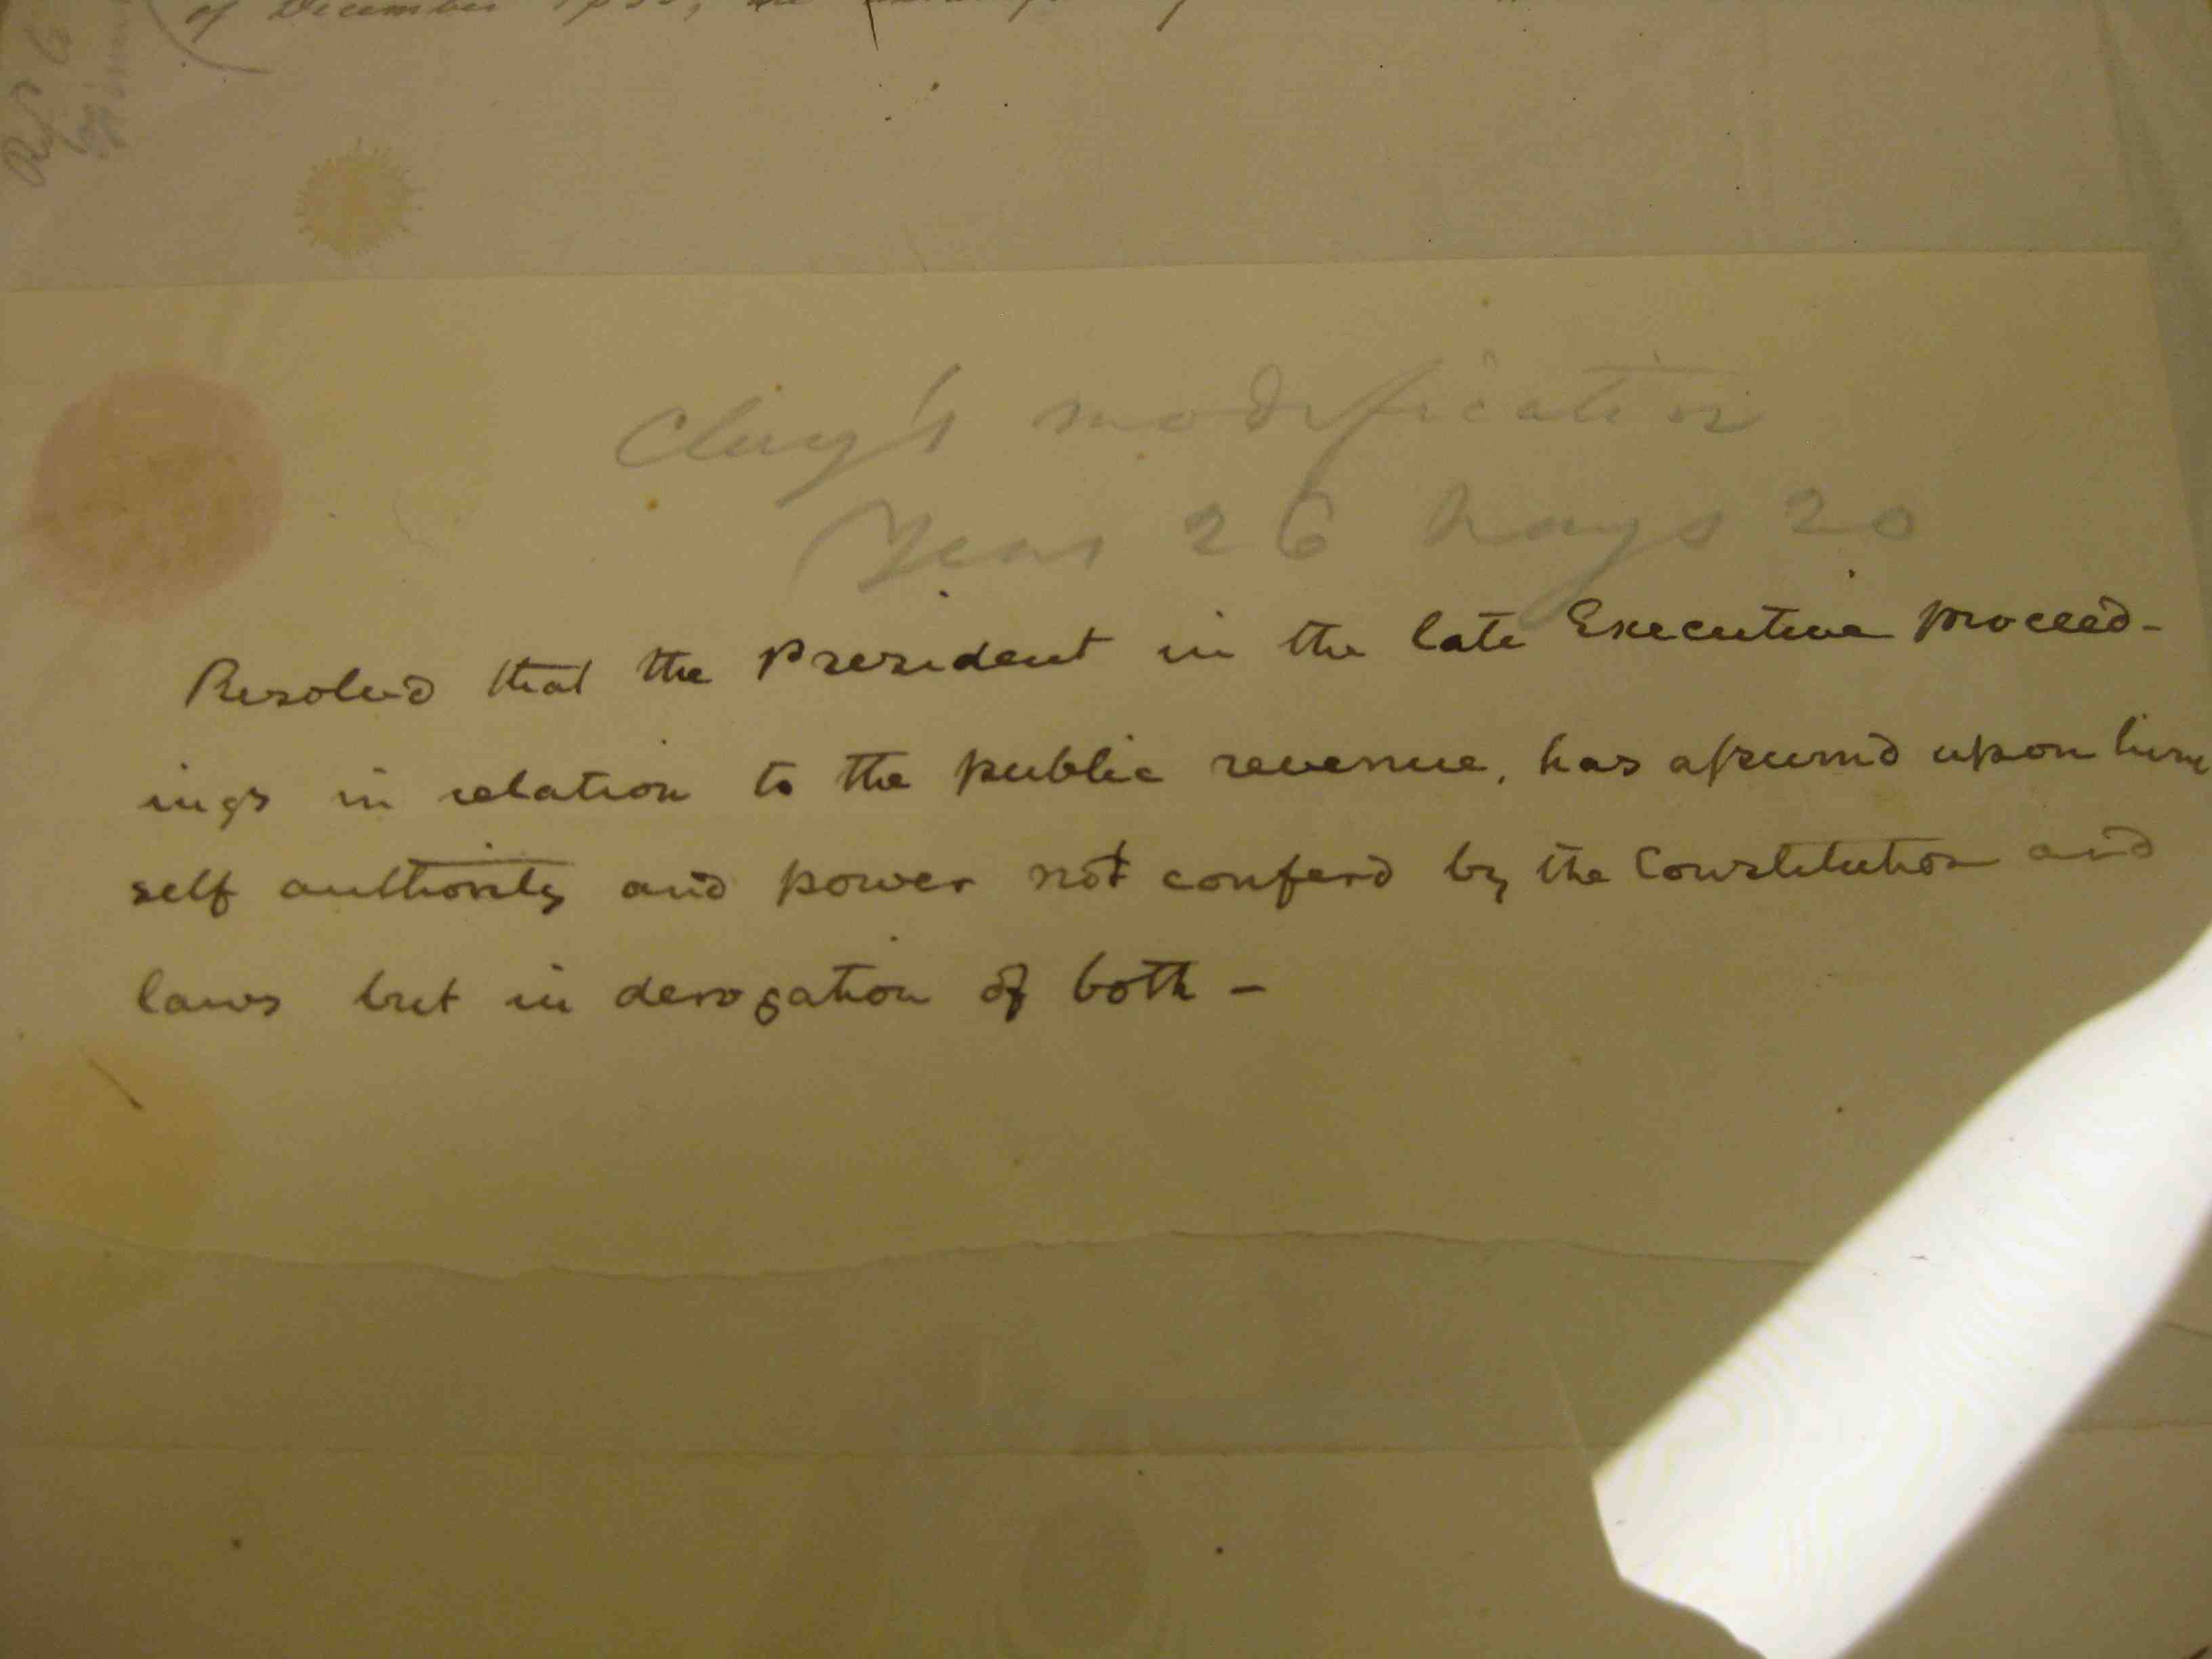 of December
Clay's modification
Yeas 26 Nays 20
Resolved that the President in the late Executive proceed-
ings in relation to the public revenue, has assumed upon him
self authority and power not conferd by the Constitution and
laws but in derogation of both -